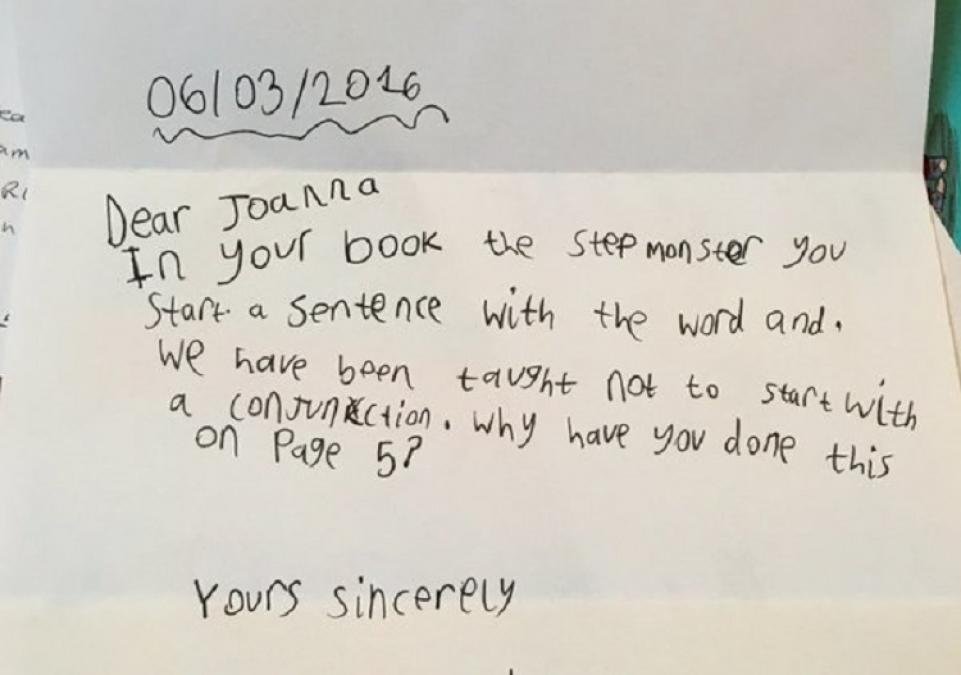 06/03/2016
Dear Joanna
In your book the stepmonster you
start a sentence with the word and.
we have been taught not to start with
a conjunction. why have you done this
on page 5?
Yours sincerely